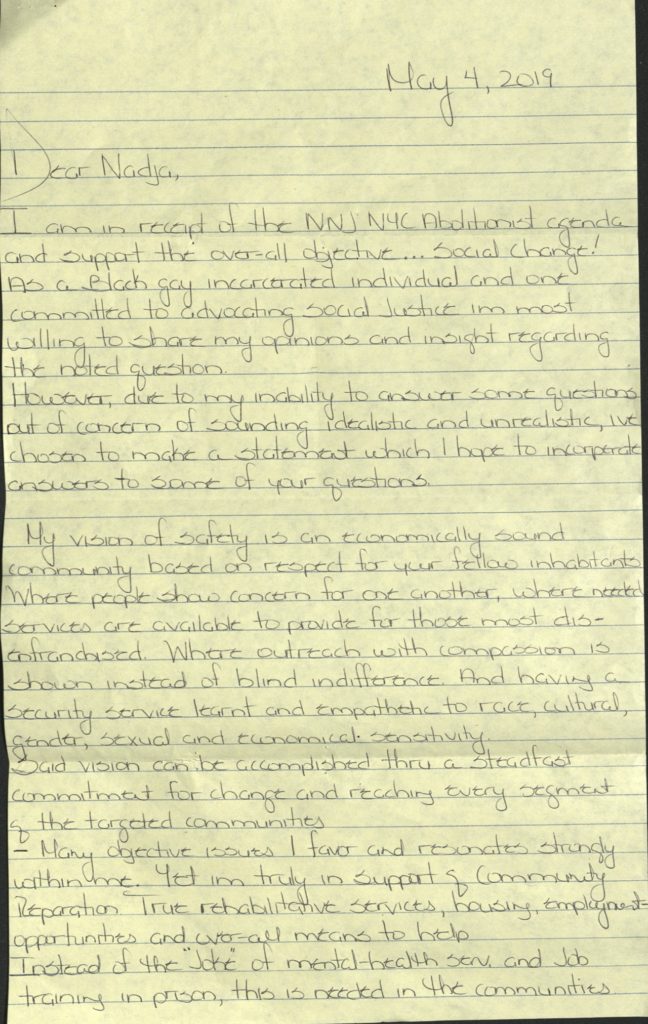 May 4, 2019
Dear Nadja,
I am in receipt of the NNJ NYC Abolitionist agenda
and support the over-all objective... Social Change!
As a Black gay incarcerated individual and one
committed to advocating social Justice im most
willing to share my opinions and insight regarding
the noted question.
However, due to my inability to answer some questions
out of concern of sounding idealistic and unrealistic, ive
chosen to make a statement which I hope to incorporate
answers to some of your questions.
My vision of safety is an economically sound
community based on respect for your fellow inhabitants
Where people show concern for one another, where needed
services are available to provide for those most dis-
enfranchised. Where outreach with compassion is
shown instead of blind indifference. And having a
security service learnt and empathetic to race, cultural,
gender, sexual and economical sensitivity.
Said vision can be accomplished thru a steadfast
commitment for change and reaching every segment
of the targeted communities
- Many objective issues I favor and resonates strongly
within me. Yet im truly in support of Community
Reparation. True rehabilitative services, housing, employment-
opportunities and over-all means to help
Instead of the "Joke" of mental-health serv. and Job
training in prison, this is needed in the communities